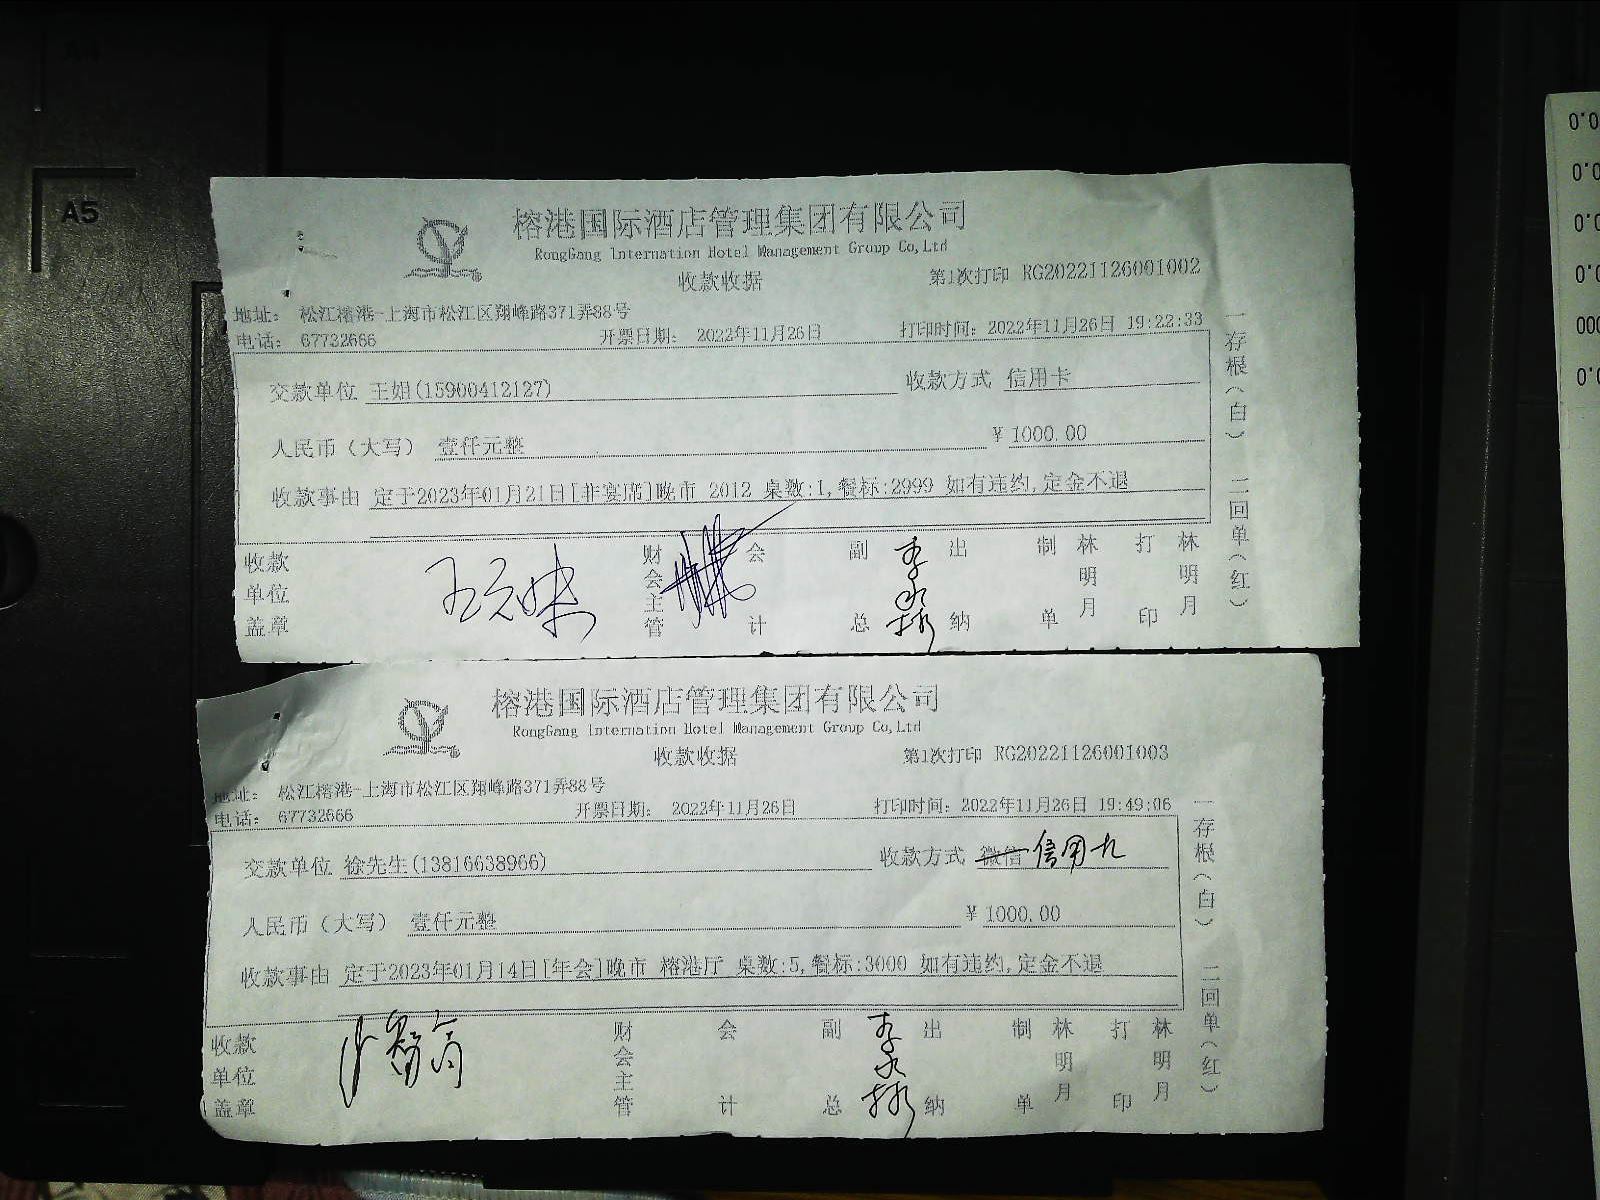 A5
榕港国际酒店管理集团有限公司
RongGang Internation Hotel Management Group Co,Ltd
收款收据
第1次打印 RG20221126001002
地址: 松江榕港-上海市松江区翔峰路371弄88号
电话: 67732666 开票日期: 2022年11月26日 打印时间: 2022年11月26日 19:22:33
交款单位 王姐(15900412127) 收款方式 信用卡
人民币(大写) 壹仟元整 ¥ 1000.00
收款事由 定于2023年01月21日[非宴席]晚市 2012 桌数:1,餐标:2999 如有违约,定金不退
收款单位盖章 财会主管 会计 副总 出纳 制单 林明月 打印 林明月
一存根(白) 二回单(红)
榕港国际酒店管理集团有限公司
RongGang Internation Hotel Management Group Co,Ltd
收款收据
第1次打印 RG20221126001003
地址: 松江榕港-上海市松江区翔峰路371弄88号
电话: 67732666 开票日期: 2022年11月26日 打印时间: 2022年11月26日 19:49:06
交款单位 徐先生(13816638966) 收款方式 微信 信用卡
人民币(大写) 壹仟元整 ¥ 1000.00
收款事由 定于2023年01月14日[年会]晚市 榕港厅 桌数:5,餐标:3000 如有违约,定金不退
收款单位盖章 财会主管 会计 副总 出纳 制单 林明月 打印 林明月
一存根(白) 二回单(红)